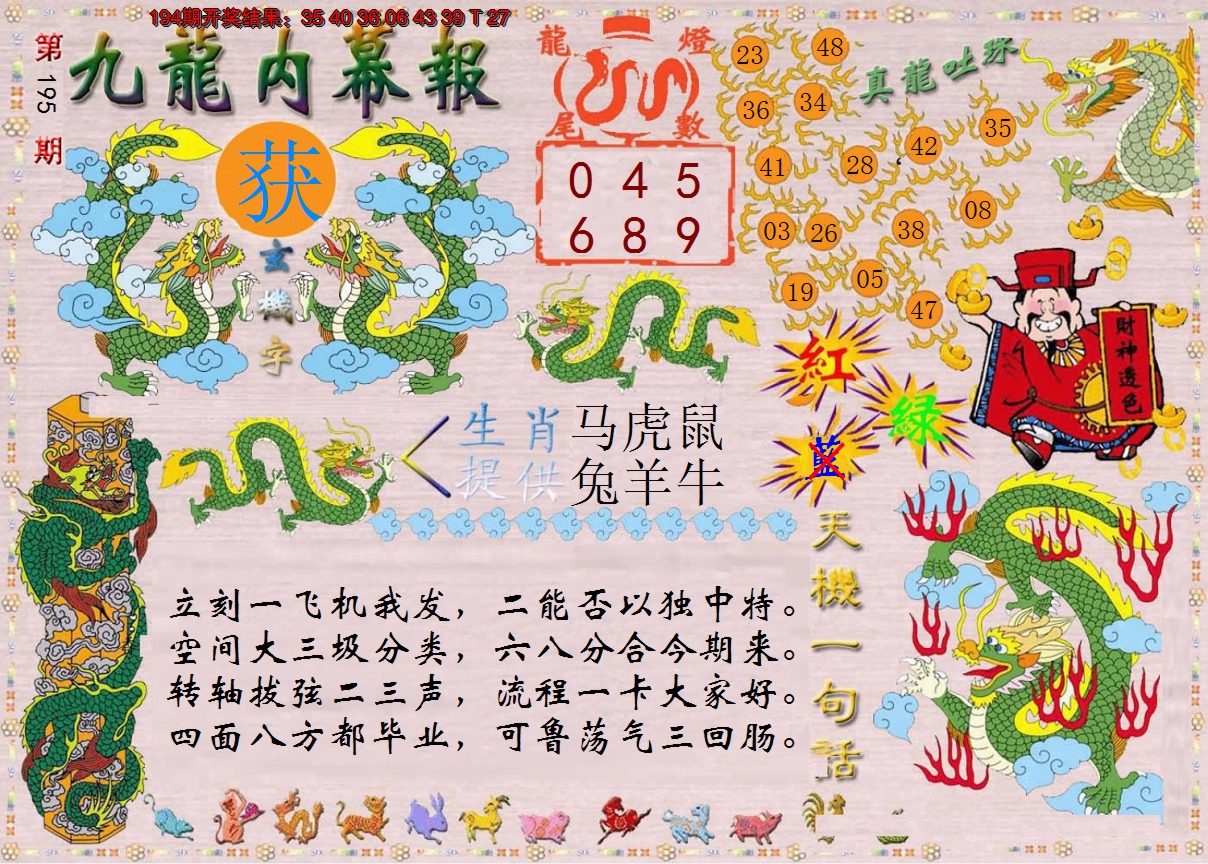 194期开奖结果：35 40 36.06 43 39 T 27
第195期
九龍内幕報
获
玄機字
龍燈
尾數
0 4 5
6 8 9
真龍吐珠
23 48
36 34
35
42
41 28
08
03 26 38
05
19
47
財神透色
紅
綠
藍
生肖 马虎鼠
提供 兔羊牛
天機一句話
立刻一飞机我发，二能否以独中特。
空间大三圾分类，六八分合今期来。
转轴拔弦二三声，流程一卡大家好。
四面八方都毕业，可鲁荡气三回肠。